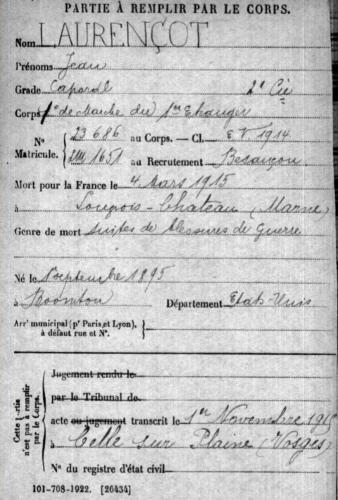 PARTIE À REMPLIR PAR LE CORPS.
Nom LAURENÇOT
Prénoms Jean
Grade Caporal 2e Cie
Corps de Marche du 1er Etranger
N° Matricule. 23.686 au Corps. — Cl. E.V. 1914
1651 au Recrutement Besançon
Mort pour la France le 4 Mars 1915
à Château (Marne)
Genre de mort suites de blessures de Guerre
Né le septembre 1895
à Département Etats-Unis
Arrt municipal (pr Paris et Lyon),
à défaut rue et N°.
Cette partie n'est pas à remplir par le Corps.
Jugement rendu le
par le Tribunal de
acte ou jugement transcrit le 1er Novembre 1915
à Celle sur Plaine (Vosges)
N° du registre d'état civil
101-708-1922. [26434]